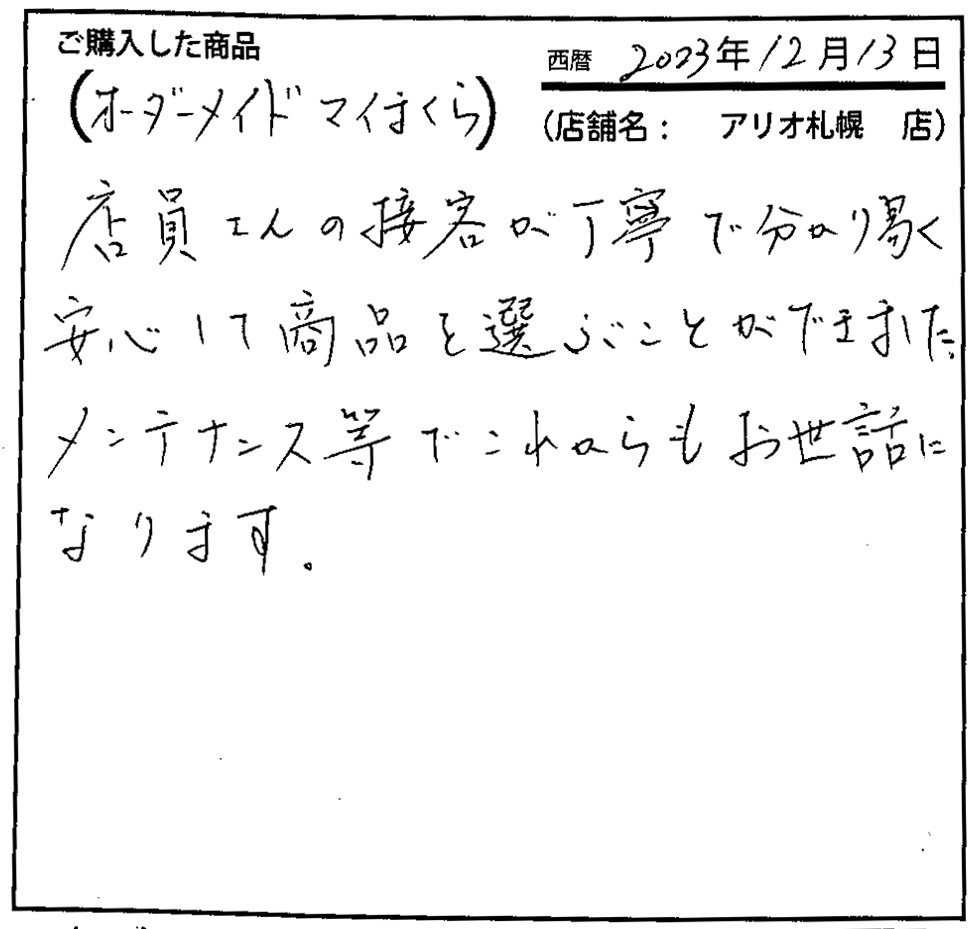 ご購入した商品
西暦 2023年12月13日
(オーダーメイド マイまくら)
(店舗名： アリオ札幌 店)
店員さんの接客が丁寧で分かり易く
安心して商品を選ぶことができました。
メンテナンス等でこれからもお世話に
なります。